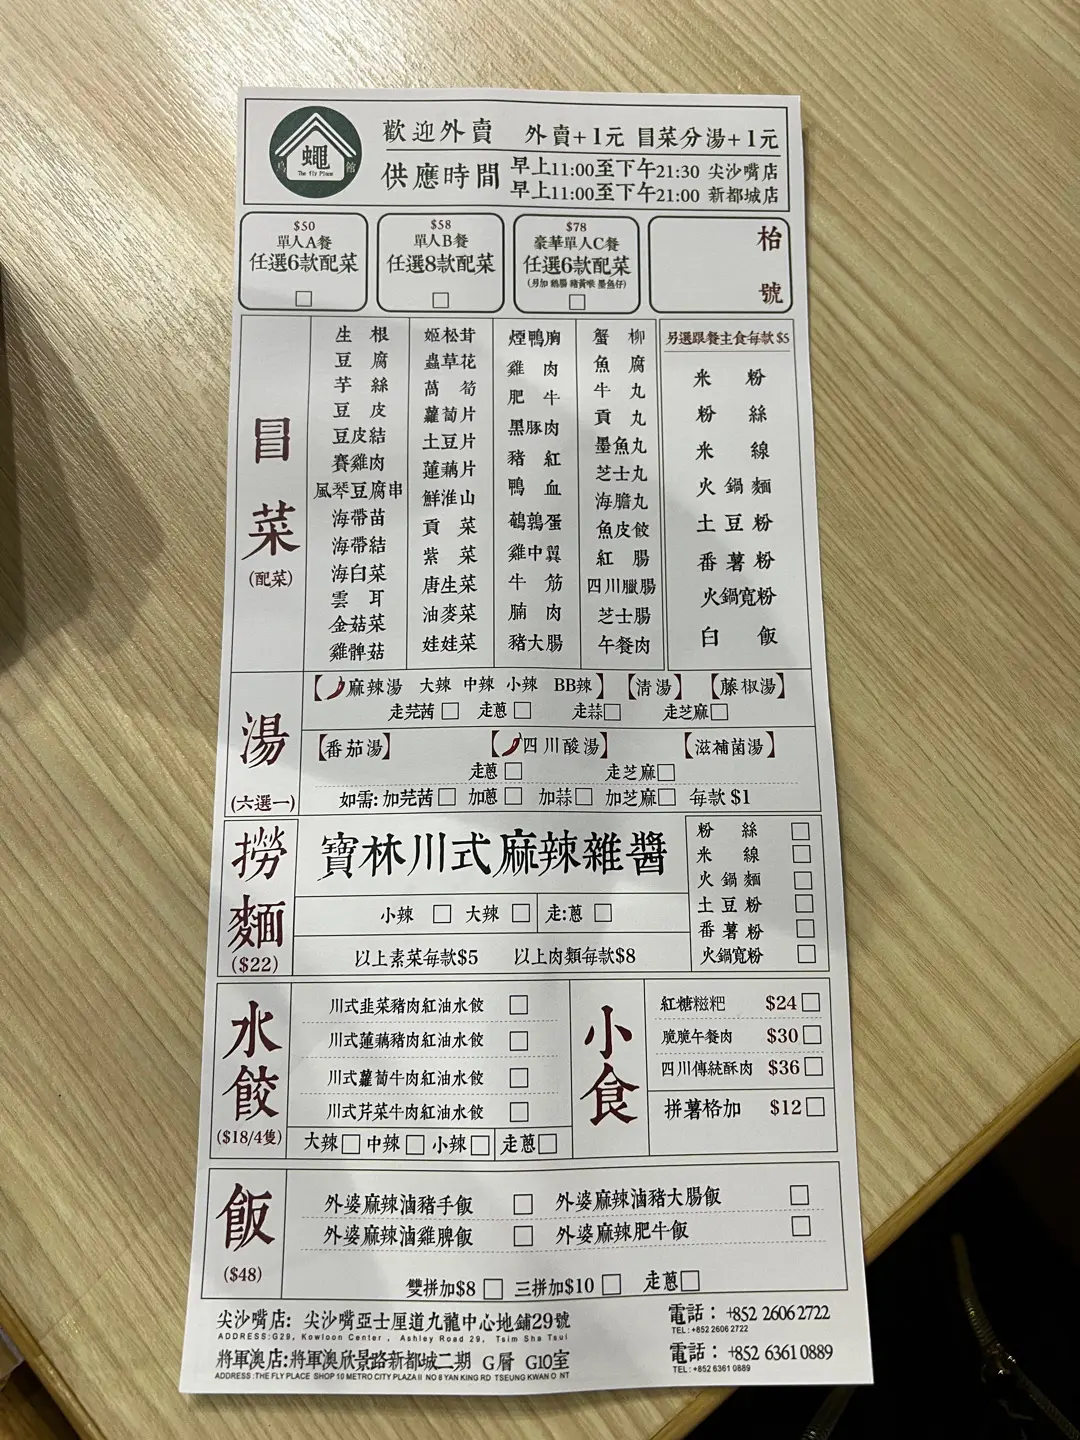 蠅
館
The Fly Place
歡迎外賣 外賣+1元 冒菜分湯+1元
供應時間 早上11:00至下午21:30 尖沙嘴店
早上11:00至下午21:00 新都城店
$50
單人A餐
任選6款配菜
$58
單人B餐
任選8款配菜
$78
豪華單人C餐
任選6款配菜
(另加 鵝腸 豬黃喉 墨魚仔)
枱號
冒菜
(配菜)
生根
豆腐
芋絲
豆皮
豆皮結
賽雞肉
風琴豆腐串
海帶苗
海帶結
海白菜
雲耳
金菇菜
雞髀菇
姬松茸
蟲草花
萵筍
蘿蔔片
土豆片
蓮藕片
鮮淮山
貢菜
紫菜
唐生菜
油麥菜
娃娃菜
煙鴨胸
雞肉
肥牛
黑豚肉
豬紅
鴨血
鵪鶉蛋
雞中翼
牛筋
腩肉
豬大腸
蟹柳
魚腐
牛丸
貢丸
墨魚丸
芝士丸
海膽丸
魚皮餃
紅腸
四川臘腸
芝士腸
午餐肉
另選跟餐主食每款$5
米粉
粉絲
米線
火鍋麵
土豆粉
番薯粉
火鍋寬粉
白飯
湯
(六選一)
【麻辣湯 大辣 中辣 小辣 BB辣】【清湯】【藤椒湯】
走芫茜 走蔥 走蒜 走芝麻
【番茄湯】【四川酸湯】【滋補菌湯】
走蔥 走芝麻
如需:加芫茜 加蔥 加蒜 加芝麻 每款 $1
撈麵
($22)
寶林川式麻辣雜醬
小辣 大辣 走:蔥
以上素菜每款$5 以上肉類每款$8
粉絲
米線
火鍋麵
土豆粉
番薯粉
火鍋寬粉
水餃
($18/4隻)
川式韭菜豬肉紅油水餃
川式蓮藕豬肉紅油水餃
川式蘿蔔牛肉紅油水餃
川式芹菜牛肉紅油水餃
大辣 中辣 小辣 走蔥
小食
紅糖糍粑 $24
脆脆午餐肉 $30
四川傳統酥肉 $36
拼薯格加 $12
飯
($48)
外婆麻辣滷豬手飯 外婆麻辣滷豬大腸飯
外婆麻辣滷雞脾飯 外婆麻辣肥牛飯
雙拼加$8 三拼加$10 走蔥
尖沙嘴店: 尖沙嘴亞士厘道九龍中心地鋪29號 電話: +852 2606 2722
ADDRESS:G29, Kowloon Center, Ashley Road 29, Tsim Sha Tsui TEL:+852 2606 2722
將軍澳店:將軍澳欣景路新都城二期 G層 G10室 電話: +852 6361 0889
ADDRESS:THE FLY PLACE SHOP 10 METRO CITY PLAZA II NO 8 YAN KING RD TSEUNG KWAN O NT TEL:+852 6361 0889